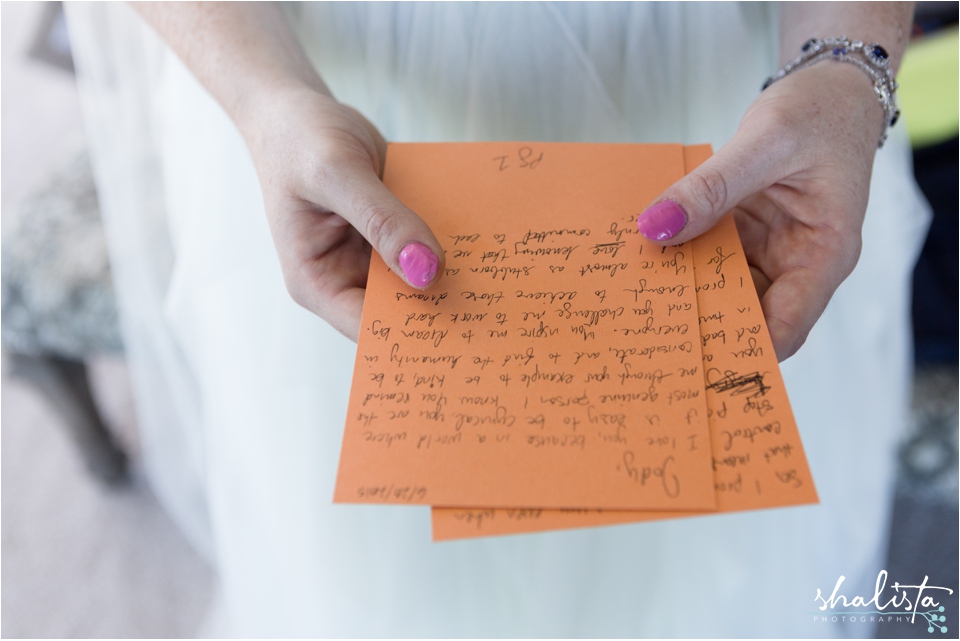 6/20/2015
Jody,
I love you, because in a world where
it is easy to be cynical, you are the
most genuine person I know. You remind
me through your example to be kind, to be
considerate, and to find the humanity in
everyone. You inspire me to dream big
and you challenge me to work hard
enough to achieve those dreams
You're almost as stubborn as
I love knowing that we
committed to each
PG 1
So I
that means
control
stop
you a
and bad
in turn
I prom
for
even when
shalista
PHOTOGRAPHY